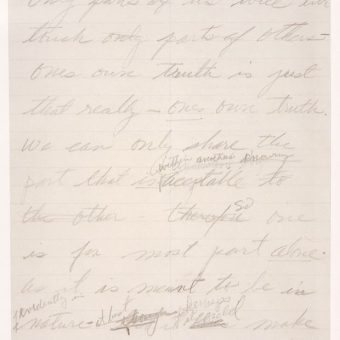 Only parts of us will ever
touch only parts of others –
ones own truth is just
that really – ones own truth.
We can only share the
within another's knowing
part that is acceptable to
the other therefore So one
is for most part alone.
as it is meant to be in
evidently in
nature – at best
perhaps
make